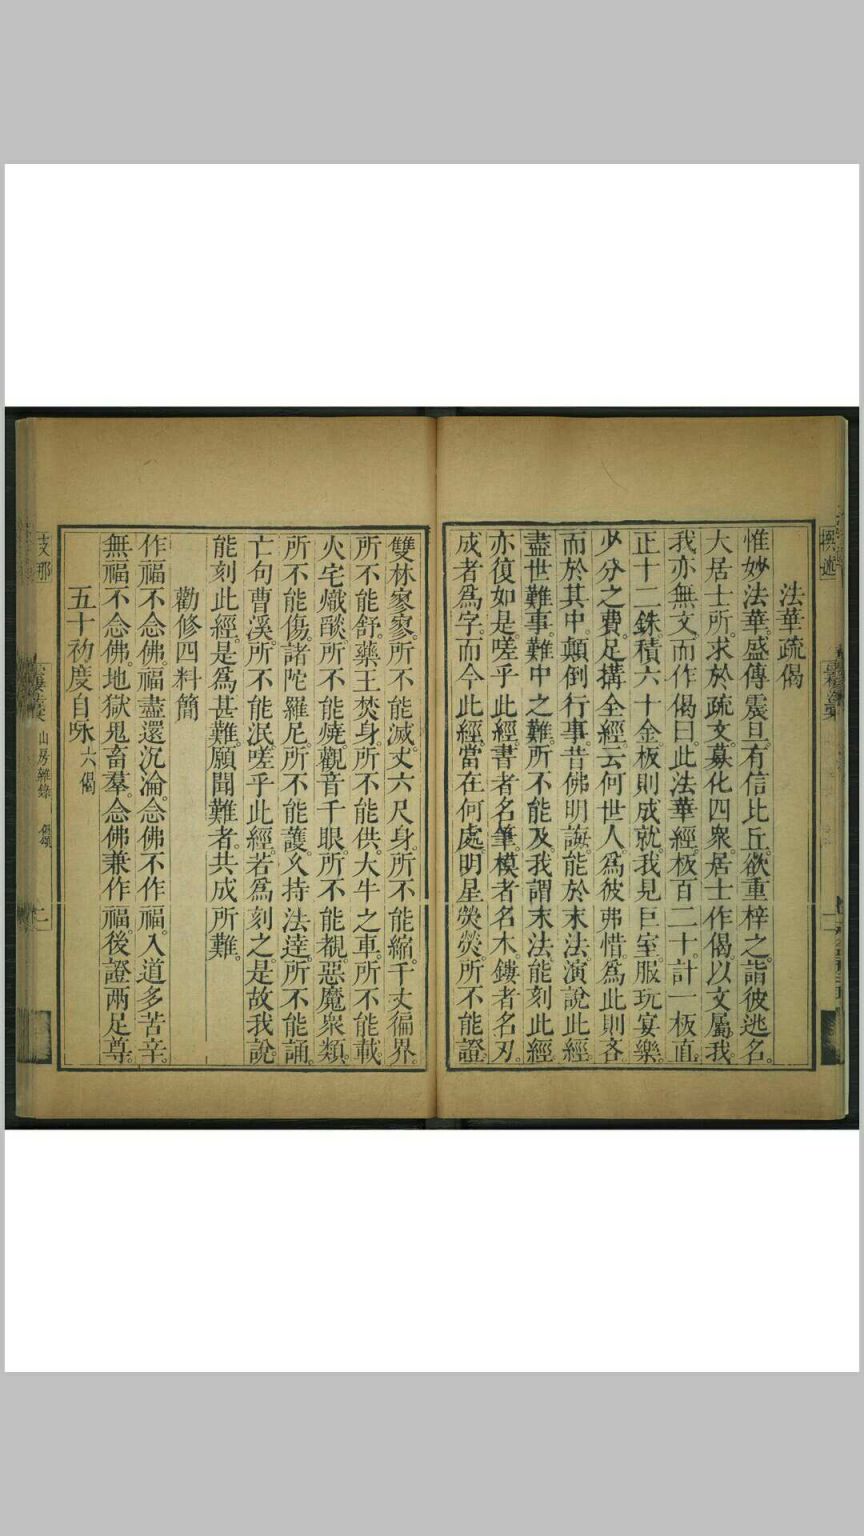 法華疏偈
惟妙法華。盛傳震旦。有信比丘。欲重梓之。詣彼逃名。
大居士所。求於疏文。募化四衆。居士作偈。以文屬我。
我亦無文。而作偈曰。此法華經。板百二十。計一板直。
正十二銖。積六十金。板則成就。我見巨室。服玩宴樂。
少分之費。足搆全經。云何世人。爲彼弗惜。爲此則吝。
而於其中。顛倒行事。昔佛明誨。能於末法。演說此經。
盡世難事。難中之難。所不能及。我謂末法。能刻此經。
亦復如是。嗟乎此經。書者名筆。模者名木。鏤者名刃。
成者爲字。而今此經。當在何處。明星熒熒。所不能證。
雙林寥寥。所不能滅。丈六尺身。所不能縮。千丈徧界。
所不能舒。藥王焚身。所不能供。大牛之車。所不能載。
火宅熾燄。所不能燒。觀音千眼。所不能覩。惡魔衆類。
所不能傷。諸陀羅尼。所不能護。久持法達。所不能誦。
亡句曹溪。所不能泯。嗟乎此經。若爲刻之。是故我說。
能刻此經。是爲甚難。願聞難者。共成所難。
勸修四料簡
作福不念佛。福盡還沉淪。念佛不作福。入道多苦辛。
無福不念佛。地獄鬼畜羣。念佛兼作福。後證兩足尊。
五十初度自咏 六偈
支那
山房雜錄
偈頌
二
撰述